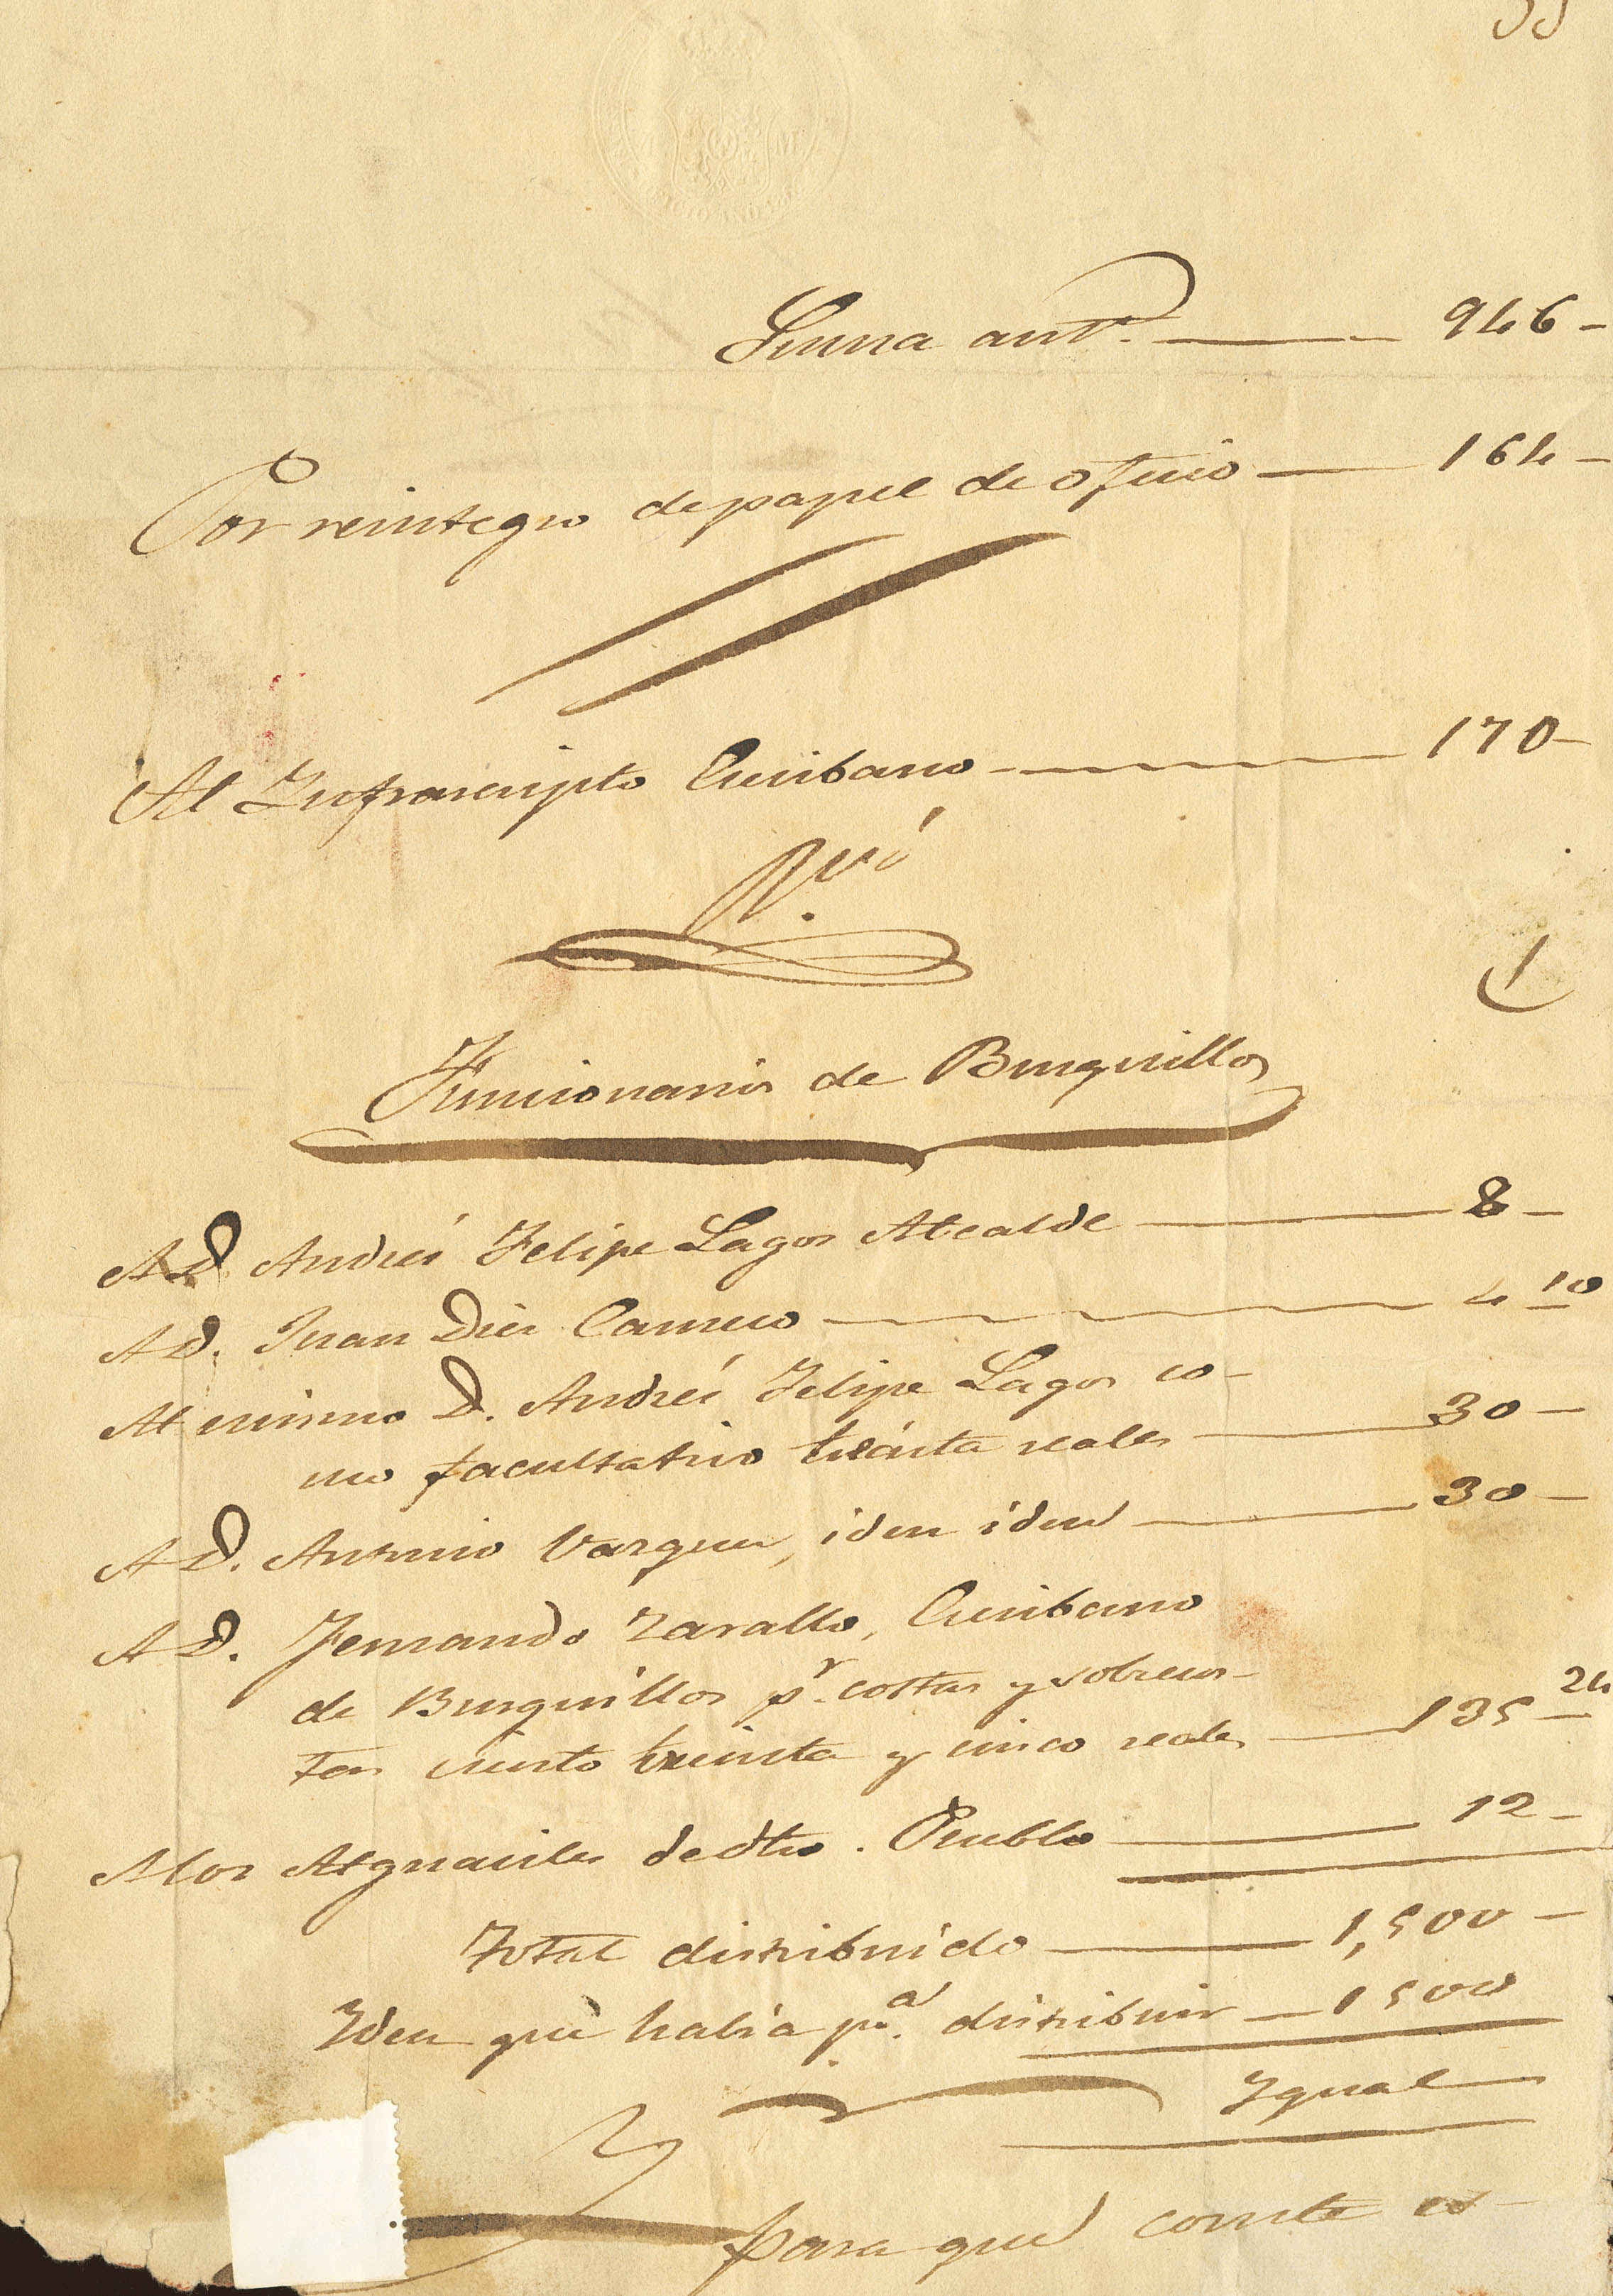 Suma antr. 946-
Por reintegro de papel de oficio 164-
Al Infrascripto Escribano 170-
Funcionarios de Burguillos
A D. Andrés Felipe Lagos Alcalde 8-
A D. Juan Diez Carrasco 4 10
Al mismo D. Andrés Felipe Lagos co-
mo facultativo treinta reales 30-
A D. Antonio Vazquez, iden iden 30-
A D. Fernando Zarallo, Escribano
de Burguillos pr. costas y sobrecos-
tas ciento treinta y cinco reales 135 24
A los Alguaciles de dho. Pueblo 12-
Total distribuido 1,500-
Iden que habia pa. distribuir 1500
Igual
para que conste es-